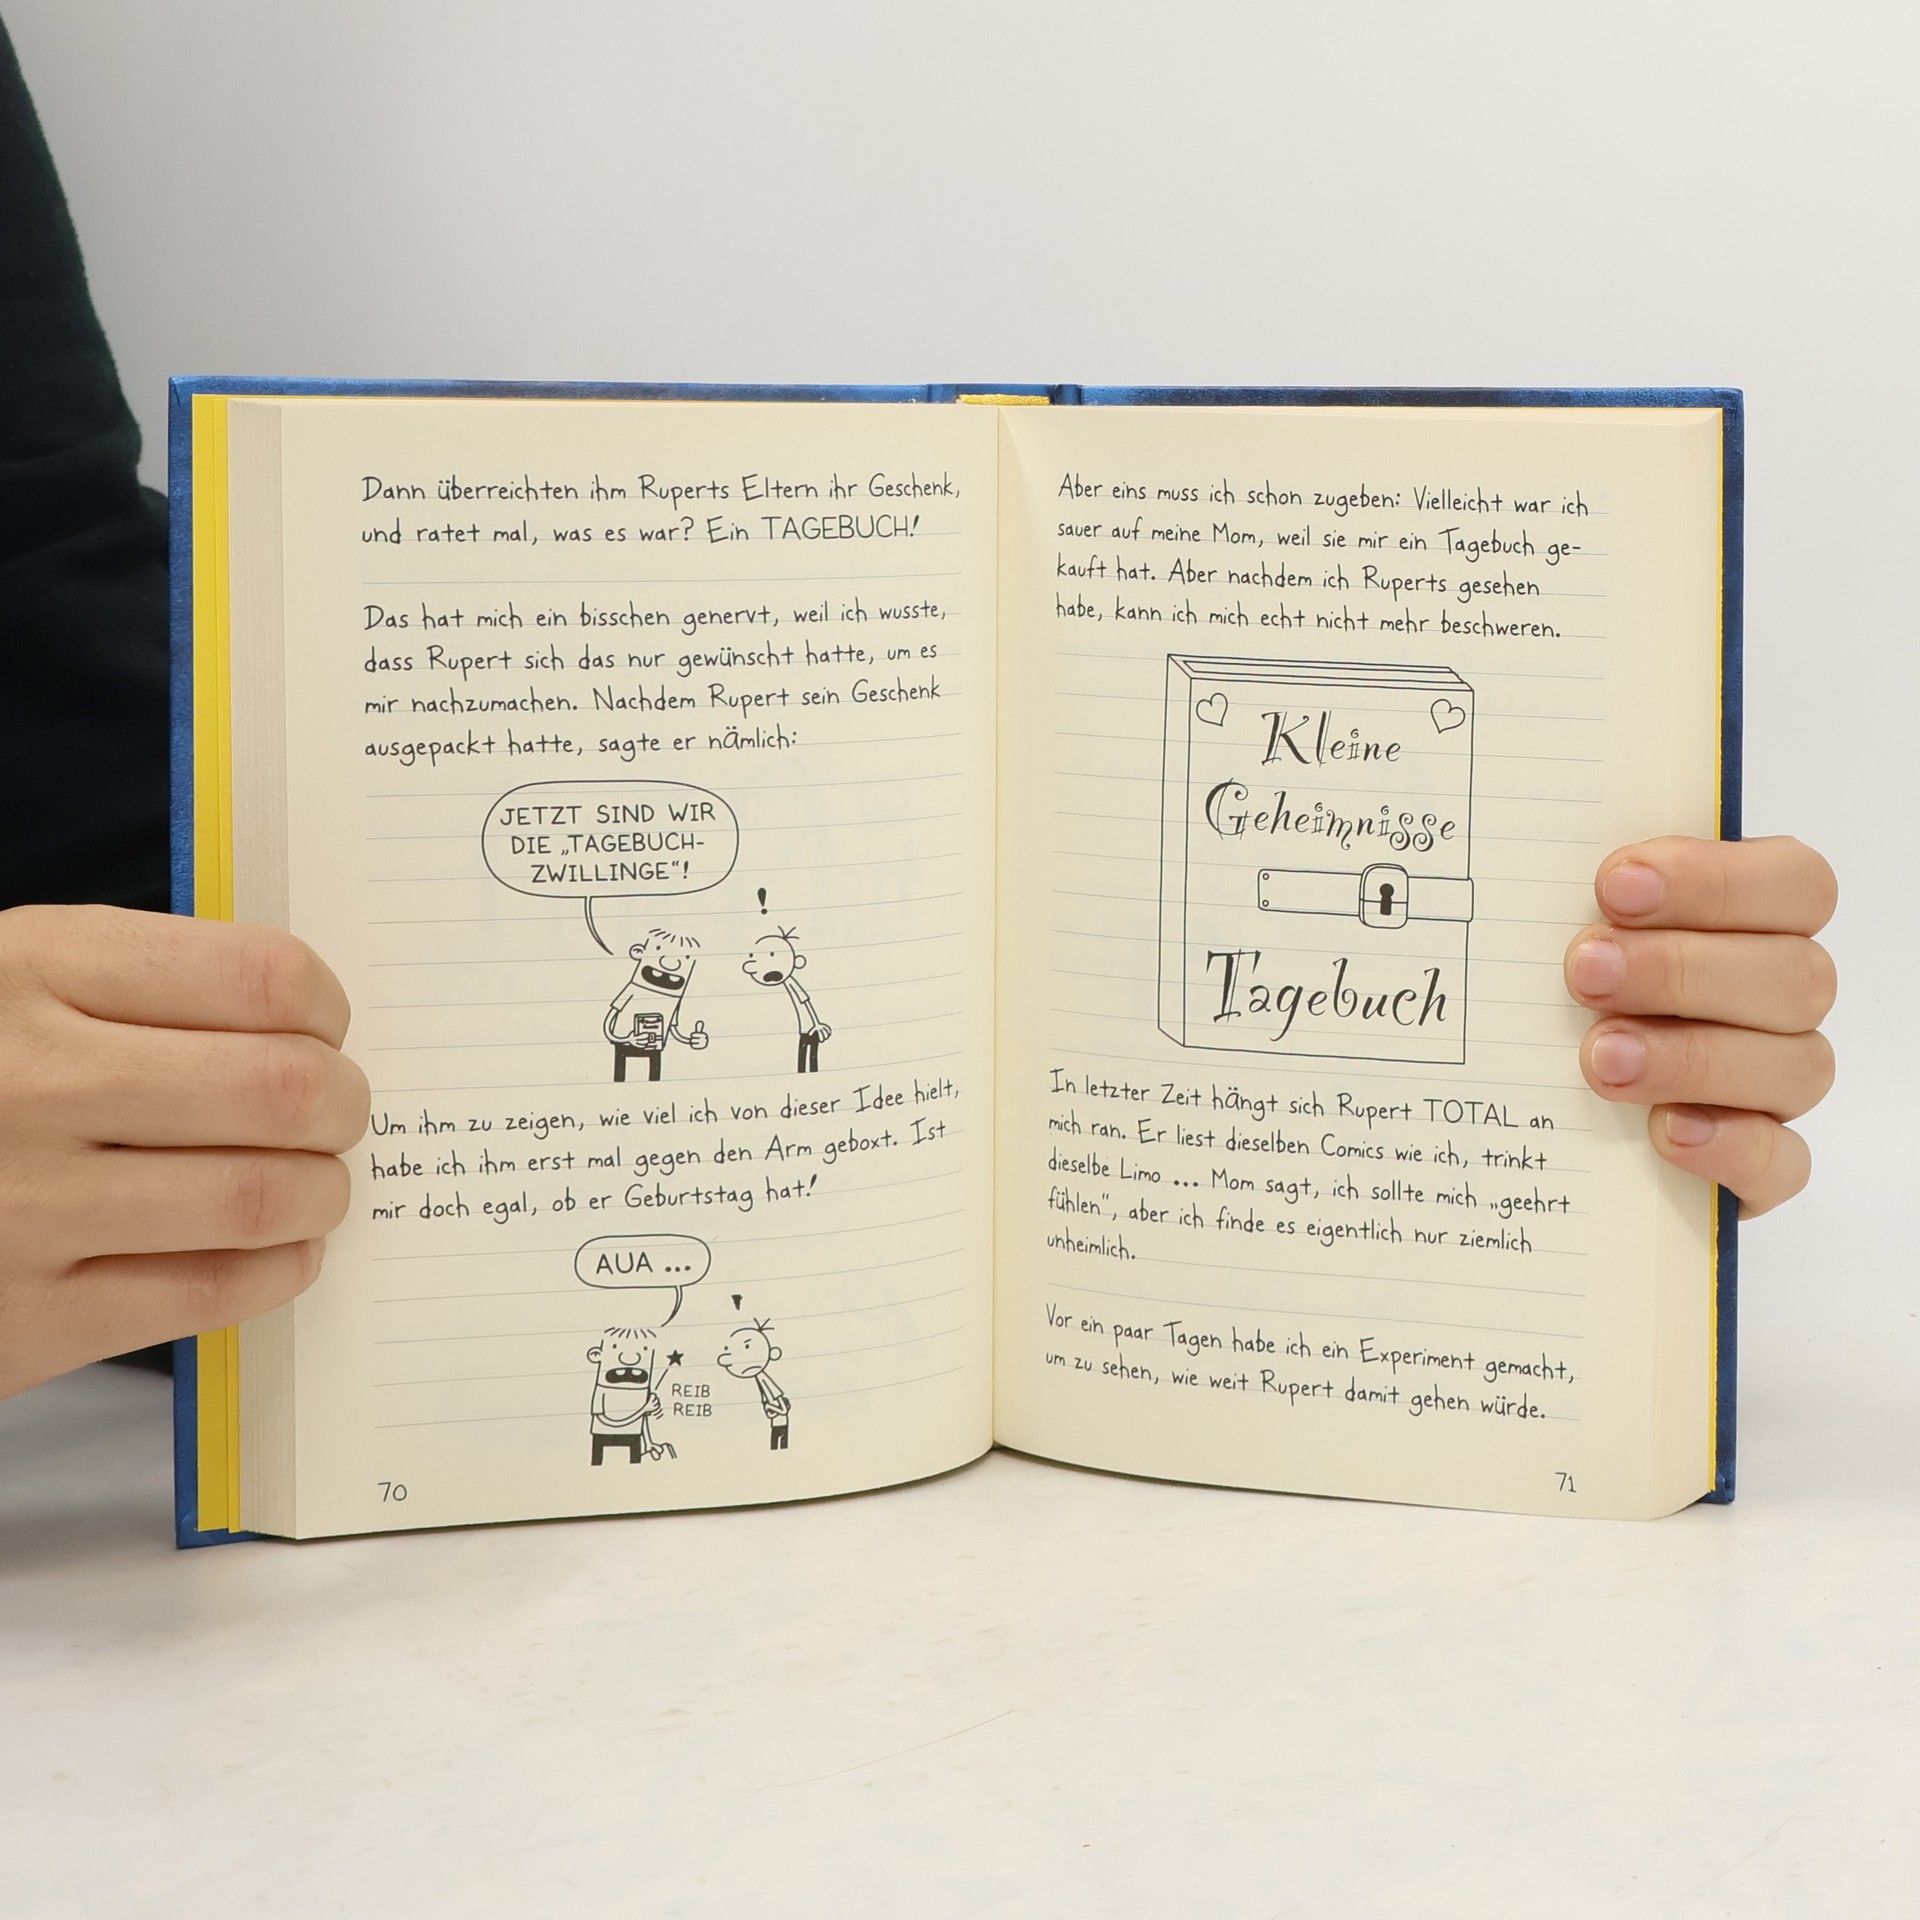 Dann überreichten ihm Ruperts Eltern ihr Geschenk,
und ratet mal, was es war? Ein TAGEBUCH!
Das hat mich ein bisschen genervt, weil ich wusste,
dass Rupert sich das nur gewünscht hatte, um es
mir nachzumachen. Nachdem Rupert sein Geschenk
ausgepackt hatte, sagte er nämlich:
JETZT SIND WIR
DIE „TAGEBUCH-
ZWILLINGE“!
!
Um ihm zu zeigen, wie viel ich von dieser Idee hielt,
habe ich ihm erst mal gegen den Arm geboxt. Ist
mir doch egal, ob er Geburtstag hat!
AUA ...
REIB
REIB
70
Aber eins muss ich schon zugeben: Vielleicht war ich
sauer auf meine Mom, weil sie mir ein Tagebuch ge-
kauft hat. Aber nachdem ich Ruperts gesehen
habe, kann ich mich echt nicht mehr beschweren.
Kleine
Geheimnisse
Tagebuch
In letzter Zeit hängt sich Rupert TOTAL an
mich ran. Er liest dieselben Comics wie ich, trinkt
dieselbe Limo ... Mom sagt, ich sollte mich „geehrt
fühlen“, aber ich finde es eigentlich nur ziemlich
unheimlich.
Vor ein paar Tagen habe ich ein Experiment gemacht,
um zu sehen, wie weit Rupert damit gehen würde.
71